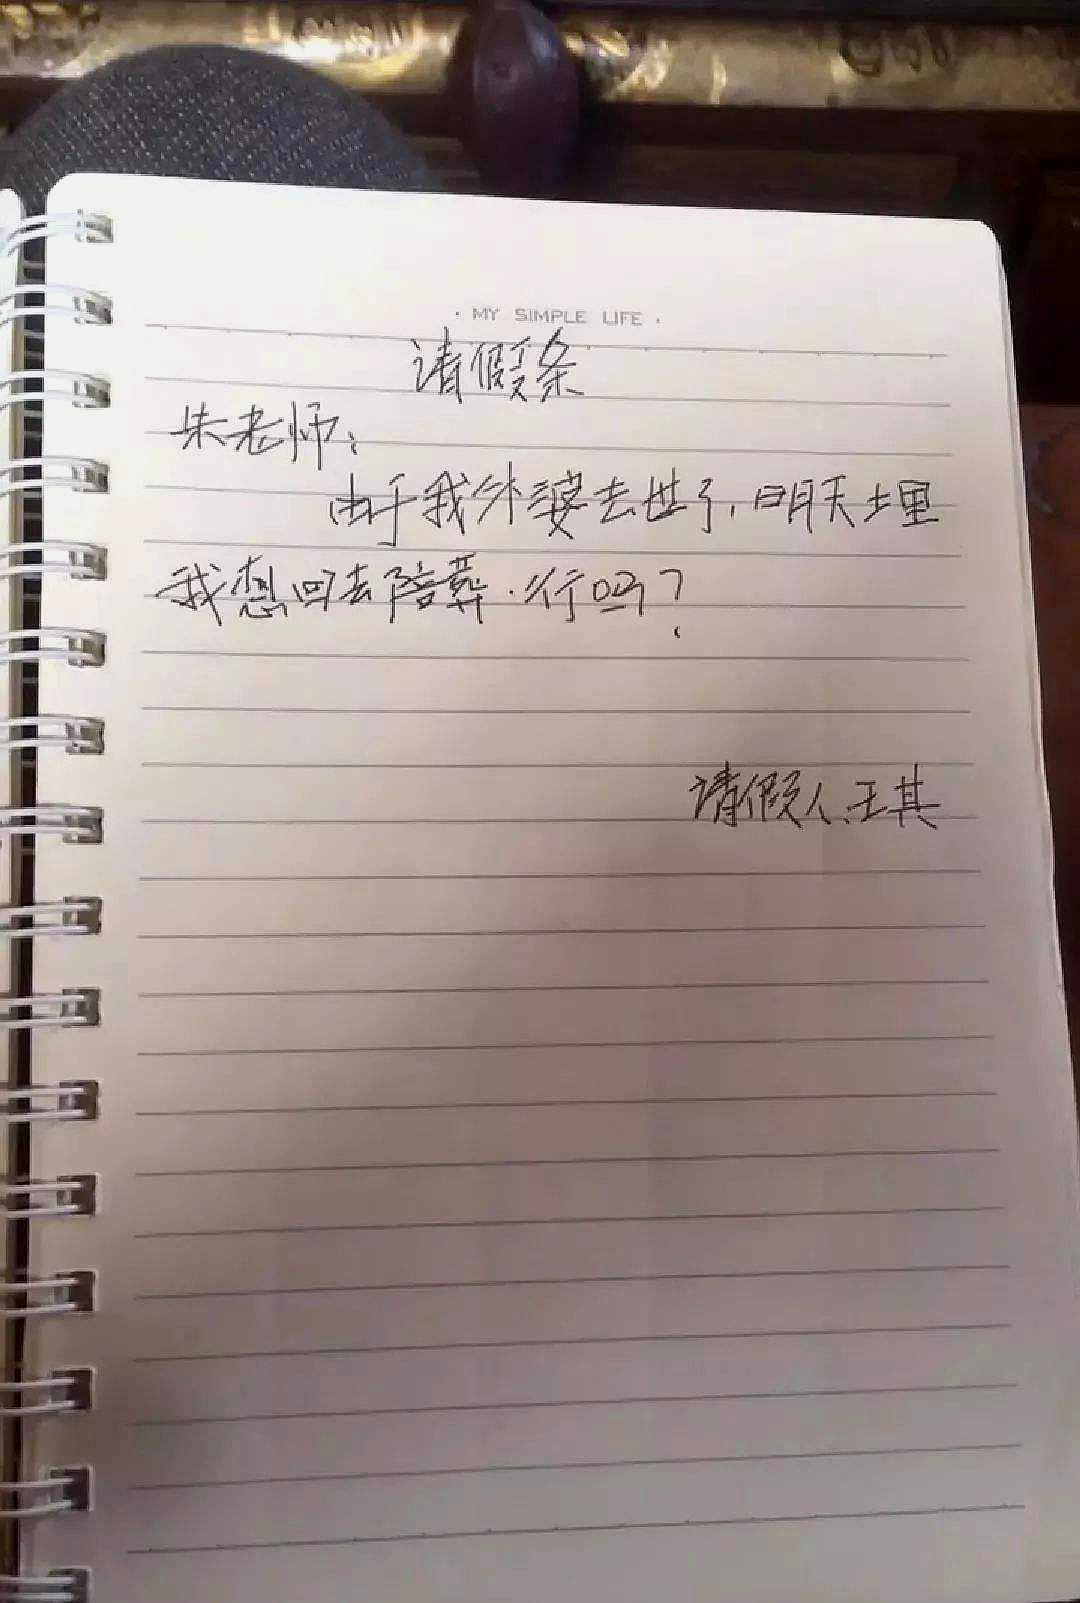 · MY SIMPLE LIFE ·
请假条
朱老师：
由于我外婆去世了，明天土里
我想回去陪葬．行吗？
请假人、王其